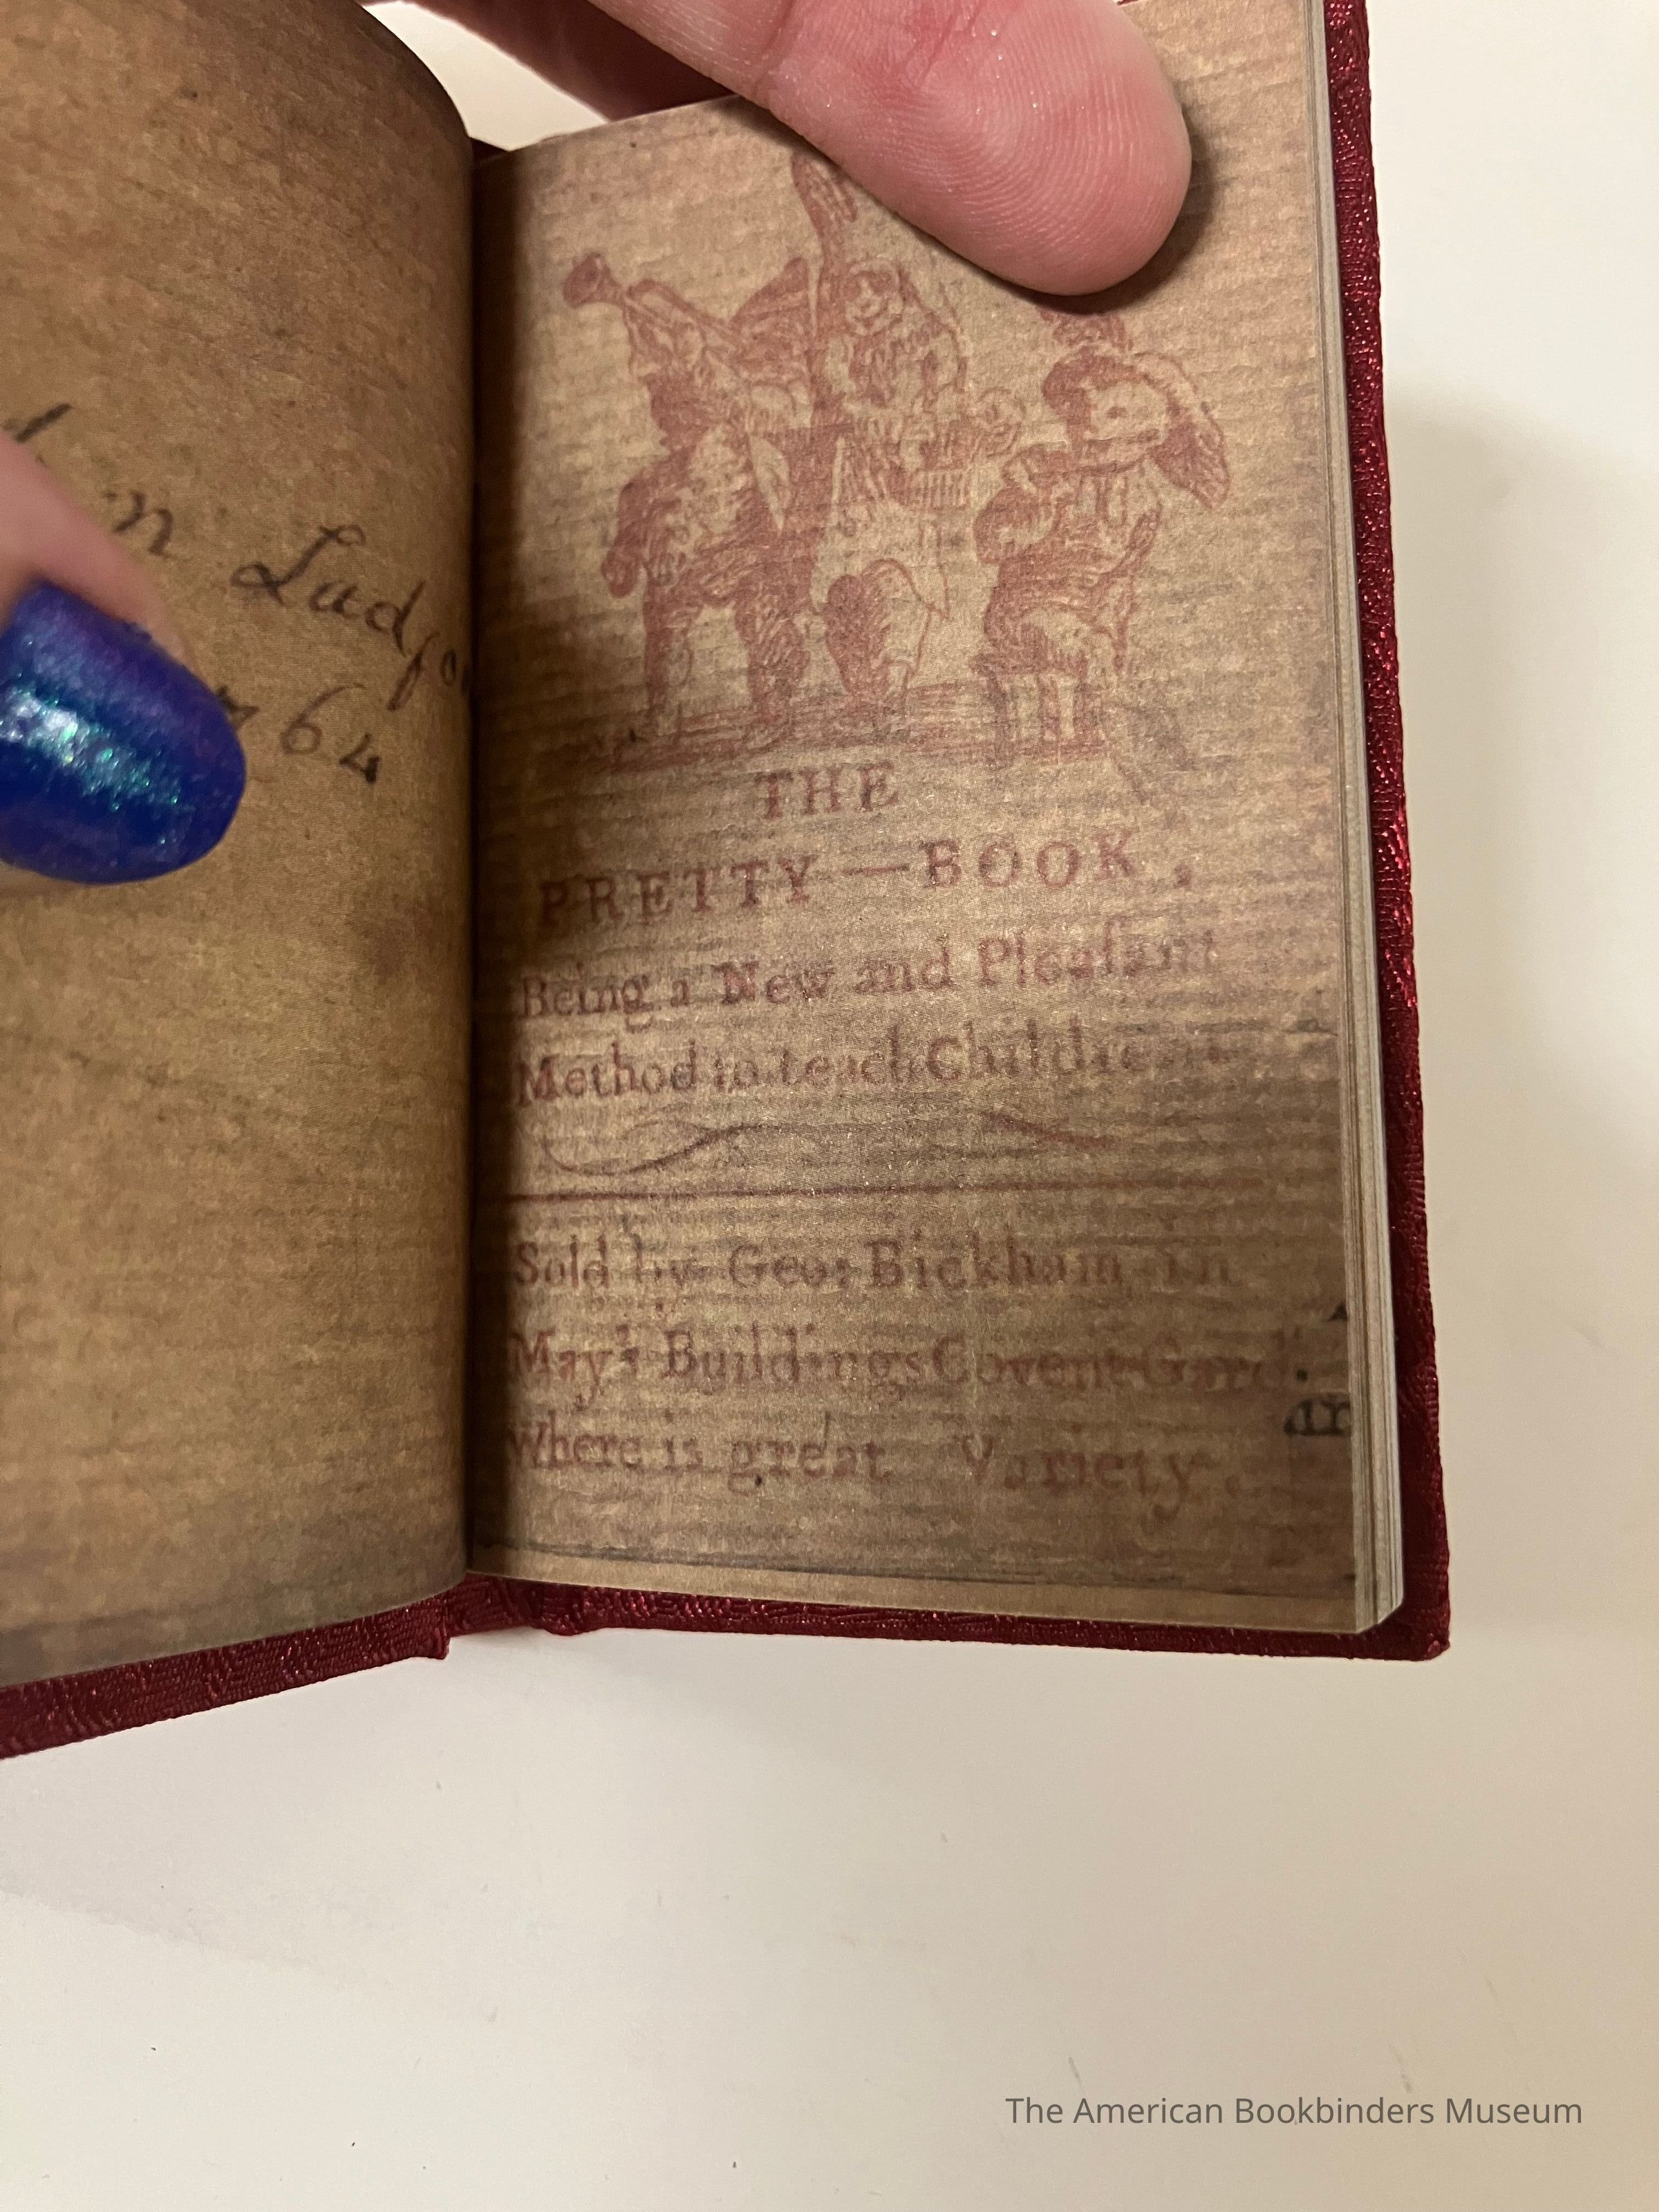 n Ladfo
764
THE
PRETTY—BOOK,
Being a New and Pleaſant
Method to teach Children
Sold by Geo: Bickham in
May's Buildings Covent Gard.
Where is great Variety.
The American Bookbinders Museum